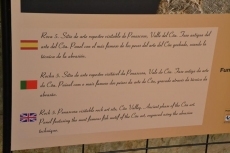 Roca 3. Sitio de arte rupestre visitable de Penascosa. Valle del Côa. Foco antiguo del
arte del Côa. Panel con el más famoso de los peces del arte del Côa grabado, usando la
técnica de la abrasión.
Rocha 3. Sítio de arte rupestre visitável da Penascosa. Vale do Côa. Foco antigo da arte
do Côa. Painel com o mais famoso dos peixes da arte do Côa, gravado através da técnica da
abrasão.
Rock 3. Penascosa visitable rock art site, Côa Valley. Ancient phase of the Côa art.
Panel featuring the most famous fish motif of the Côa art, engraved using the abrasion
technique.
Fun